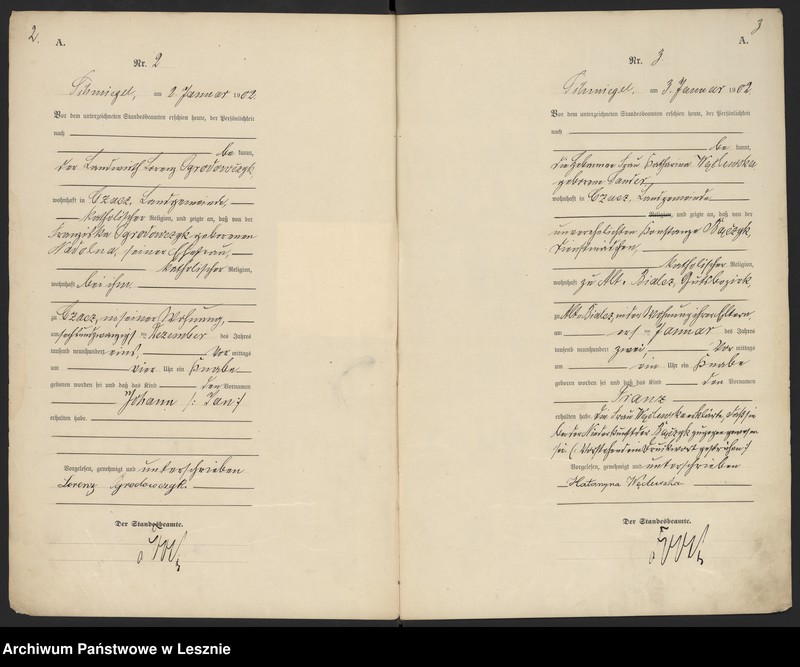 2.
A.
Nr. 2
Schmiegel, am 2. Januar 1902.
Vor dem unterzeichneten Standesbeamten erschien heute, der Persönlichkeit
nach
be kannt,
der Landwirth Lorenz Ogrodowczyk,
wohnhaft in Czacz, Landgemeinde,
katholischer Religion, und zeigte an, daß von der
Franziska Ogrodowczyk geborenen
Nadolna, seiner Ehefrau,
katholischer Religion,
wohnhaft bei ihm
zu Czacz, in seiner Wohnung,
am sechsundzwanzigsten Dezember des Jahres
tausend neunhundert eins, Vor mittags
um vier Uhr ein Knabe
geboren worden sei und daß das Kind den Vornamen
Johann /: Jan :/
erhalten habe.
Vorgelesen, genehmigt und unterschrieben
Lorenz Ogrodowczyk.
Der Standesbeamte.
3
A.
Nr. 3
Schmiegel, am 3. Januar 1902.
Vor dem unterzeichneten Standesbeamten erschien heute, der Persönlichkeit
nach
be kannt,
die Hebamme Frau Katharina
geborene Sander,
wohnhaft in Czacz, Landgemeinde
Religion, und zeigte an, daß von der
unverehelichten Konstanze Bączyk,
Dienstmädchen,
katholischer Religion,
wohnhaft zu Alt-Bialcz, Gutsbezirk,
zu Alt-Bialcz, in der Wohnung ihrer Eltern
am ersten Januar des Jahres
tausend neunhundert zwei Vor mittags
um ein Uhr ein Knabe
geboren worden sei und daß das Kind den Vornamen
Franz
erhalten habe. Die Frau erklärte, daß sie
bei der Niederkunft der Bączyk zugegen gewesen
sei (Vorstehend ein Druckwort gestrichen)
Vorgelesen, genehmigt und unterschrieben
Katarzyna
Der Standesbeamte.
Archiwum Państwowe w Lesznie